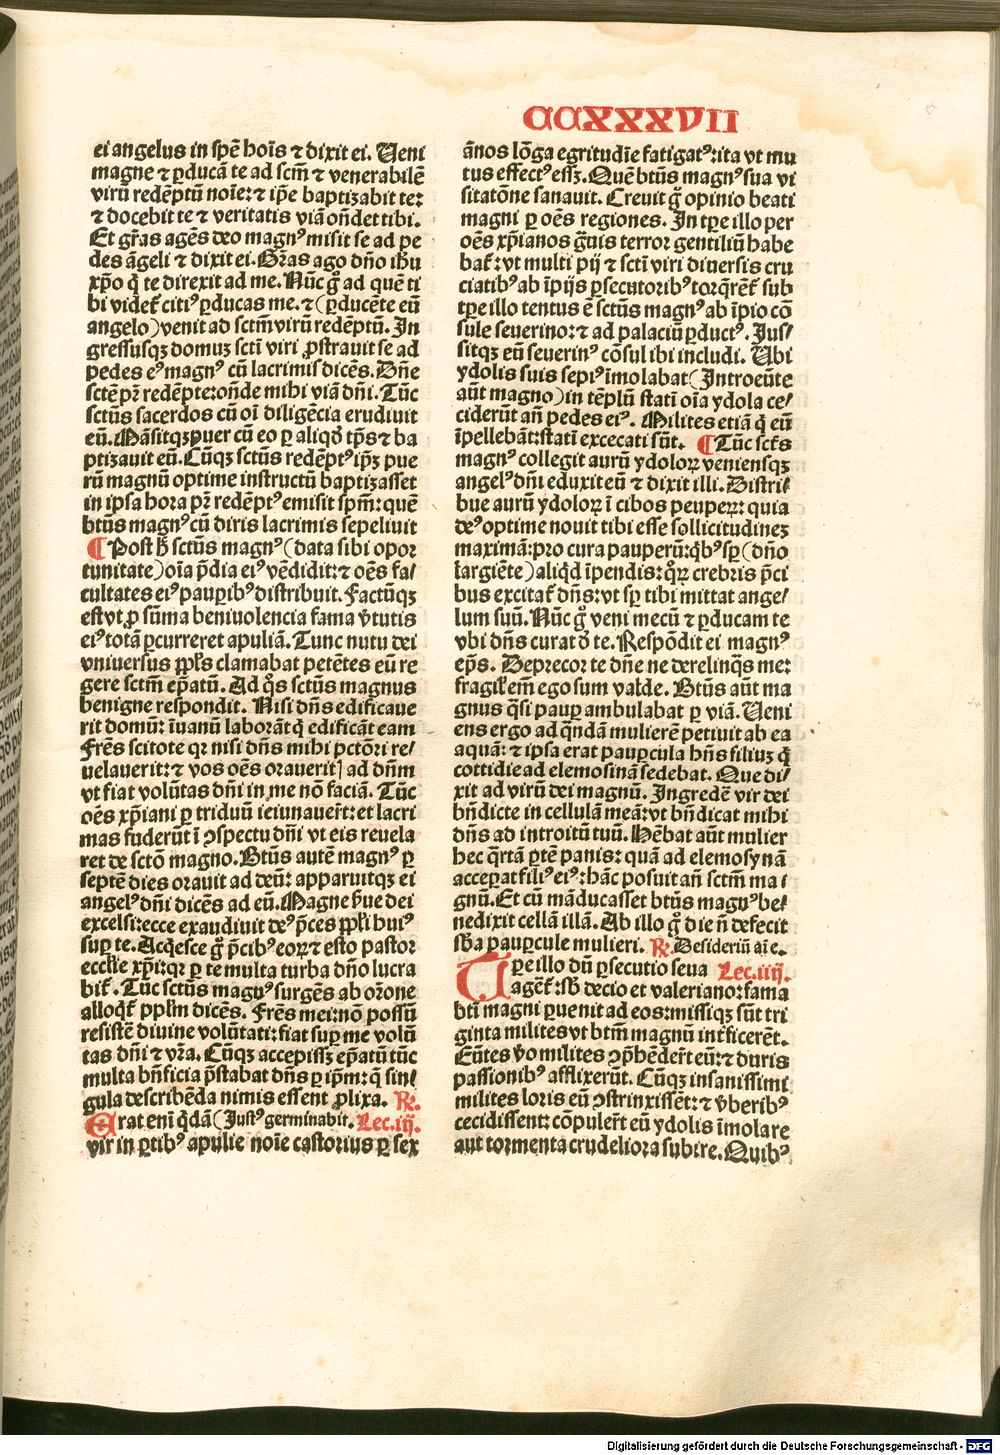 CCXXXVII
ei angelus in spē hoīs ⁊ dixit ei. Ueni
magne ⁊ ꝑducā te ad scm̄ ⁊ venerabilē
virū redēptū noīe: ⁊ ip̄e baptizabit te:
⁊ docebit te ⁊ veritatis viā on̄det tibi.
Et gr̄as agēs deo magnꝰ misit se ad pe
des āgeli ⁊ dixit ei. Gr̄as ago dn̄o ihū
xp̄o q̄ te direxit ad me. Nūc g̊ ad quē ti
bi videt᷑ citiꝰ ꝑducas me. ⁊ (ꝑducēte eū
angelo) venit ad sctm̄ virū redēptū. In
gressusqꝫ domuꝫ scti viri ꝓstrauit se ad
pedes eꝰ magnꝰ cū lacrimis dicēs. Dn̄e
sctē pr̄ redēpte: on̄de mihi viā dn̄i. Tūc
sctūs sacerdos cū oī diligēcia erudiuit
eū. Māsitqꝫ puer cū eo ꝑ aliqd̄ tp̄s ⁊ ba
ptizauit eū. Cūqꝫ sctūs redēptꝰ ip̄ꝫ pue
rū magnū optime instructū baptizasset
in ipsa hora pr̄ redēptꝰ emisit spm̄: quē
btūs magnꝰ cū diris lacrimis sepeliuit
¶ Post h̄ sctūs magnꝰ (data sibi opor
tunitate) oīa p̄dia eiꝰ vēdidit: ⁊ oēs fa⸗
cultates eiꝰ pauꝑibꝰ distribuit. Factūqꝫ
est vt ꝑ sūma beniuolencia fama v̄tutis
eiꝰ totā ꝑcurreret apuliā. Tunc nutu dei
vniuersus pp̄ls clamabat petētes eū re
gere sctm̄ ep̄atū. Ad q̊s sctūs magnus
benigne respondit. Nisi dn̄s edificaue
rit domū: īuanū laborāt q̄ edificāt eam
Frēs scitote qꝛ nisi dn̄s mihi pctōri re⸗
uelauerit: ⁊ vos oēs oraueritꝭ ad dn̄m
vt fiat volūtas dn̄i in me nō faciā. Tūc
oēs xp̄iani ꝑ triduū ieiunauer̄t: et lacri
mas fuderūt ī ꝯspectu dn̄i vt eis reuela
ret de sctō magno. Btūs autē magnꝰ ꝑ
septē dies orauit ad deū: apparuitqꝫ ei
angelꝰ dn̄i dicēs ad eū. Magne s̄ue dei
excelsi: ecce exaudiuit deꝰ p̄ces pp̄li huiꝰ
suꝑ te. Acq̄esce g̊ p̄cibꝰ eoꝝ ⁊ esto pastor
eccl̄ie xp̄i: qꝛ ꝑ te multa turba dn̄o lucra
bit᷑. Tūc sctūs magnꝰ surgēs ab or̄one
alloqt᷑ pplm̄ dicēs. Frēs mei: nō possū
resistē diuine volūtati: fiat suꝑ me volū
tas dn̄i ⁊ vr̄a. Cūqꝫ accepissꝫ ep̄atū tūc
multa bn̄ficia p̄stabat dn̄s ꝑ ip̄m: q̄ sin⸗
gula describēda nimis essent ꝓlixa. ℞.
Erat enī q̄dā (Justꝰ germinabit. Lec.iij.
vir in ꝑtibꝰ apulie noīe castorius ꝑ sex
ānos lōga egritudīe fatigatꝰ: ita vt mu
tus effectꝰ essꝫ. Quē btūs magnꝰ sua vi
sitatōne sanauit. Creuit g̊ opinio beati
magni ꝑ oēs regiones. In tp̄e illo per
oēs xp̄ianos g̊uis terror gentiliū habe
bat᷑: vt multi pij ⁊ scti viri diuersis cru
ciatibꝰ ab īpijs ꝑsecutoribꝰ torq̄rēt᷑ sub
tp̄e illo tentus ē sctūs magnꝰ ab īpio cō
sule seuerino: ⁊ ad palaciū ꝑductꝰ. Jus⸗
sitqꝫ eū seuerinꝰ cōsul ibi includi. Ubi
ydolis suis sepiꝰ īmolabat (Introeūte
aūt magno) in tēplū statī oīa ydola ce⸗
ciderūt an̄ pedes eiꝰ. Milites etiā q̄ eū
īpellebāt: statī excecati sūt. ¶ Tūc sct̄s
magnꝰ collegit aurū ydoloꝝ veniensqꝫ
angelꝰ dn̄i eduxit eū ⁊ dixit illi. Distri⸗
bue aurū ydoloꝝ ī cibos peupeꝝ: quia
deꝰ optime nouit tibi esse sollicitudineꝫ
maximā: pro cura pauperū: qb̄ꝰ sꝑ (dn̄o
largiēte) aliqd̄ īpendis: q̄ꝝ crebris p̄ci
bus excitat᷑ dn̄s: vt sꝑ tibi mittat ange⸗
lum suū. Nūc g̊ veni mecū ⁊ ꝑducam te
vbi dn̄s curat d̄ te. Respōdit ei magnꝰ
ep̄s. Deprecor te dn̄e ne derelinq̄s me:
fragil᷑ em̄ ego sum valde. Btūs aūt ma
gnus q̄si pauꝑ ambulabat ꝑ viā. Ueni
ens ergo ad q̄ndā mulierē petiuit ab ea
aquā: ⁊ ipsa erat pauꝑcula hn̄s filiuꝫ q̄
cottidie ad elemosinā sedebat. Que di⸗
xit ad virū dei magnū. Ingredē vir dei
bn̄dicte in cellulā meā: vt bn̄dicat mihi
dn̄s ad introitū tuū. Hēbat aūt mulier
hec q̄rtā ꝑtē panis: quā ad elemosynā
acceꝑat filiꝰ eiꝰ: hāc posuit an̄ sctm̄ ma⸗
gnū. Et cū māducasset btūs magnꝰ be⸗
nedixit cellā illā. Ab illo g̊ die n̄ defecit
sb̄a pauꝑcule mulieri. ℞. Desideriū aīe.
Tp̄e illo dū ꝑsecutio seua Lec.iiij.
aget᷑: sb̄ decio et valeriano: fama
bti magni ꝑuenit ad eos: missiqꝫ sūt tri
ginta milites vt btm̄ magnū int᷑ficerēt.
Eūtes v̊o milites ꝯp̄hēder̄t eū: ⁊ duris
passionibꝰ afflixerūt. Cūqꝫ insanissimi
milites loris eū ꝯstrinxissēt: ⁊ v̄beribꝰ
cecidissent: cōpuler̄t eū ydolis īmolare
aut tormenta crudeliora subire. Quibꝰ
Digitalisierung gefördert durch die Deutsche Forschungsgemeinschaft - DFG